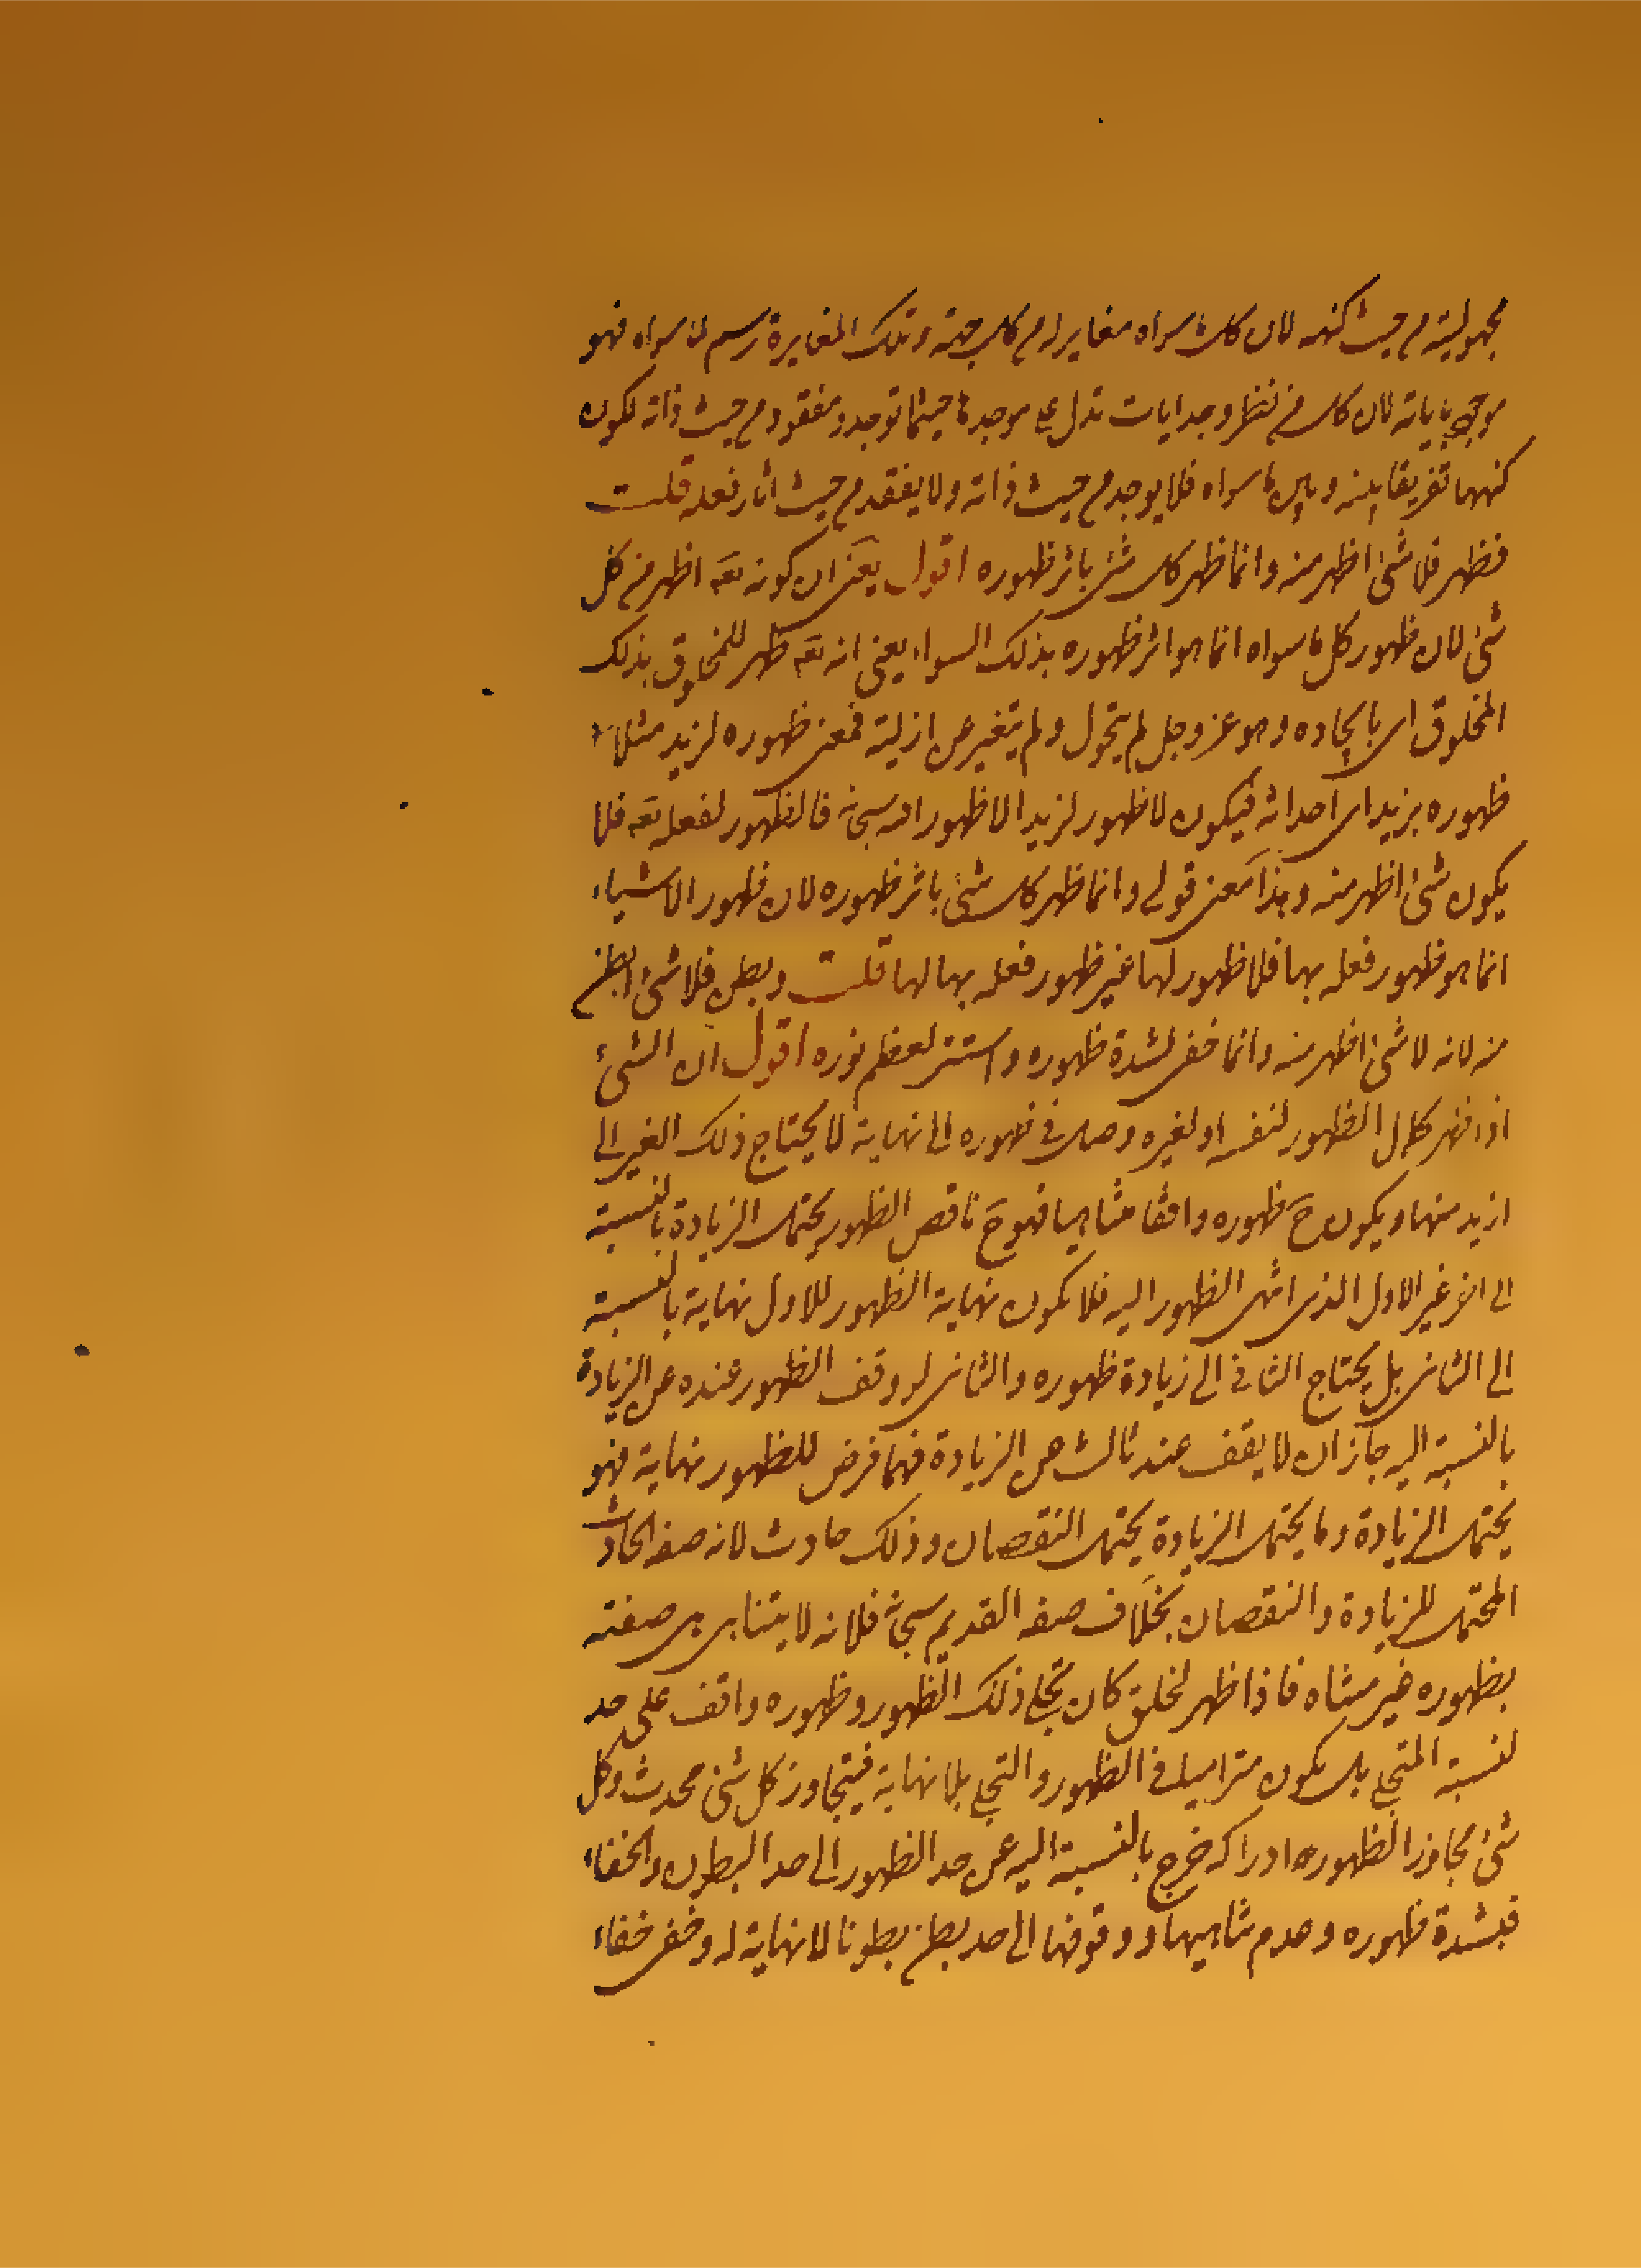 مجهوليته من حيث كنهه لان كل ما سواه مغاير له من كل جهة وتلك المغايرة رسم لما سواه فهو
موجود باياته لان كل من نظر وجد ايات تدل على موجدها حيثما توجد ومفقود من حيث ذاته لكون
كنهها تفريقا بينه وبين ما سواه فلا يوجد من حيث ذاته ولا يفقد من حيث اثار فعله قلت
فظهر فلا شئ اظهر منه وانما ظهر كل شئ باثر ظهوره اقول يعنى ان كونه تعه اظهر من كل
شئ لان ظهور كل ما سواه انما هو اثر ظهوره بذلك السواء يعنى انه تعه ظهر للمخلوق بذلك
المخلوق اى بايجاده وهو عز وجل لم يتحول ولم يتغير عن ازليته فمعنى ظهوره لزيد مثلا
ظهوره بزيد اى احداثه فيكون لا ظهور لزيد الا ظهور الله سبحانه فالظهور لفعله تعه فلا
يكون شئ اظهر منه وهذا معنى قولى وانما ظهر كل شئ باثر ظهوره لان ظهور الاشياء
انما هو ظهور فعله بها فلا ظهور لها غير ظهور فعله بها لها قلت وبطن فلا شئ ابطن
منه لانه لا شئ اظهر منه وانما خفى لشدة ظهوره واستتر لعظم نوره اقول ان الشئ
اذا ظهر كمال الظهور لنفسه او لغيره وصل فى ظهوره الى نهاية لا يحتاج ذلك الغير الى
ازيد منها ويكون ح ظهوره واقفا متناهيا فهو ح ناقص الظهور يحتمل الزيادة بالنسبة
الى اخر غير الاول الذى انتهى الظهور اليه فلا يكون نهاية الظهور للاول نهاية بالنسبة
الى الثانى بل يحتاج الثانى الى زيادة ظهوره والثانى لو وقف الظهور عنده عن الزيادة
بالنسبة اليه جاز ان لا يقف عند ثالث عن الزيادة فهما فرض للظهور نهاية فهو
يحتمل الزيادة وما يحتمل الزيادة يحتمل النقصان وذلك حادث لانه صفة الحادث
المحتمل للزيادة والنقصان بخلاف صفة القديم سبحانه فلانه لا يتناهى صفته
بظهوره غير متناه فاذا ظهر لخلق كان تجلى ذلك الظهور وظهوره واقف على حد
لنسبة المتجلى بل يكون متراميا فى الظهور والتجلى بلا نهاية فيتجاوز كل شئ محدث وكل
شئ تجاوز الظهور ادراكه خرج بالنسبة اليه عن حد الظهور الى حد البطون والخفاء
فبشدة ظهوره وعدم تناهيها ووقوفها الى حد بطن بطونا لا نهاية له وخفى خفاء